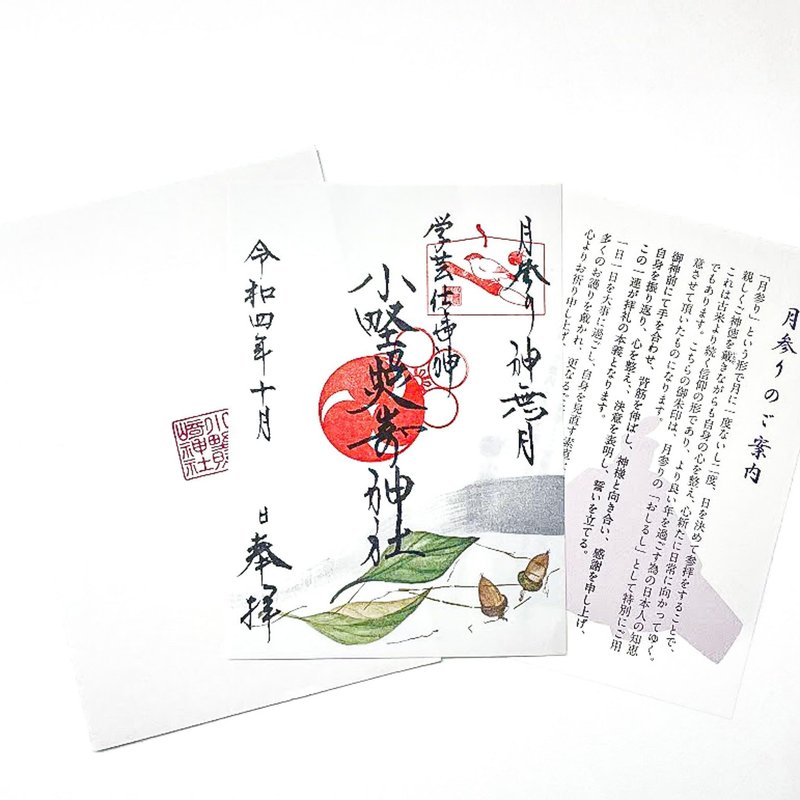 月参りのご案内
「月参り」という形で月に一度ないし二度、日を決めて参拝をすることで、
親しくご神徳を戴きながらも自身の心を整え、心新たに日常に向かってゆく。
これは古来より続く信仰の形であり、より良い年を過ごす為の日本人の知恵
でもあります。こちらの御朱印は、月参りの「おしるし」として特別にご用
意させて頂いたものになります。
御神前にて手を合わせ、背筋を伸ばし、神様と向き合い、感謝を申し上げ、
自身を振り返り、心を整え、決意を表明し、誓いを立てる。
この一連が拝礼の本義となります。
一日一日を大事に過ごし、自身を見直す素直
多くのお護りを戴かれ、更なるご
心よりお祈り申し上げ
月参り神無月
学芸仕事神
小野照嵜神社
令和四年十月 日奉拝
小野照
崎神社